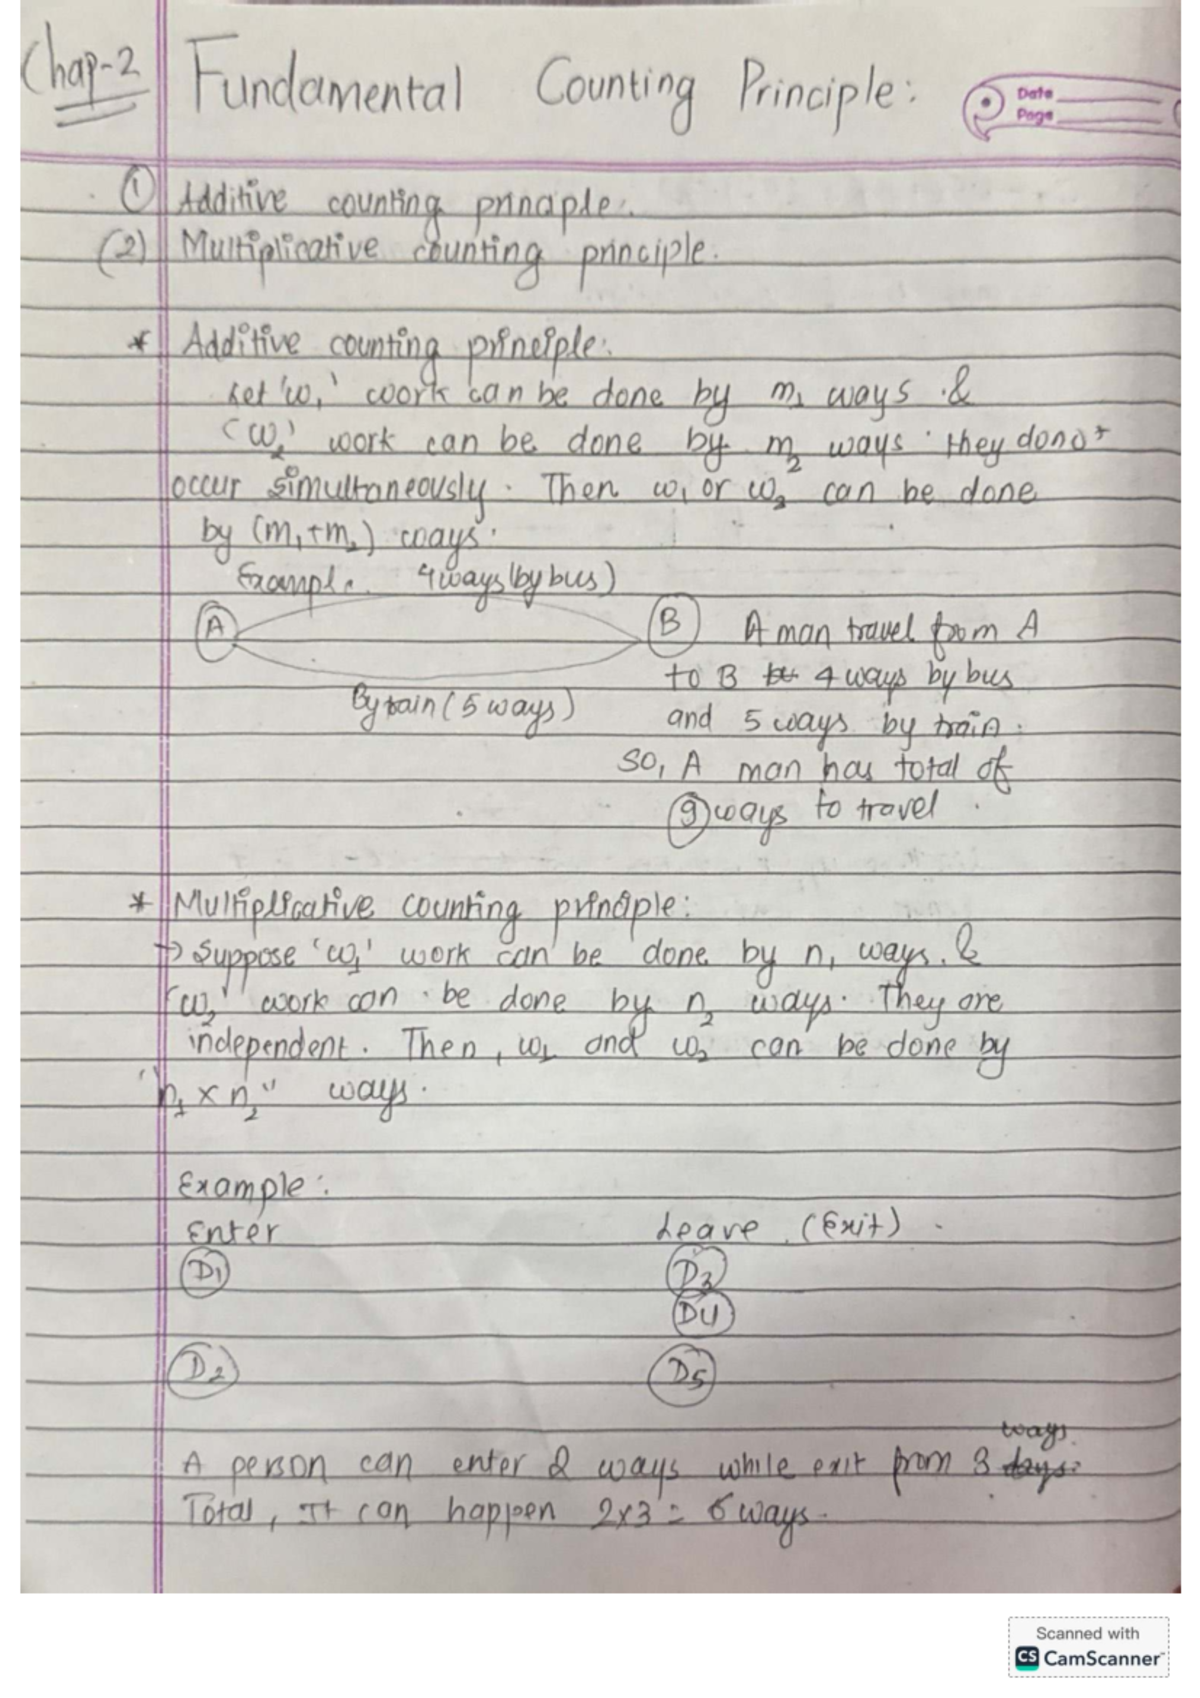 Chap-2 Fundamental Counting Principle:
Date
Page
① Additive counting principle:
(2) Multiplicative counting principle.
* Additive counting principle:
Let 'w₁' work can be done by m₁ ways &
'w₂' work can be done by m₂ ways. they donot
occur simultaneously. Then w₁ or w₂ can be done
by (m₁+m₂) ways.
Example. 4 ways (by bus)
A B A man travel from A
to B 4 ways by bus
By train (5 ways) and 5 ways by train.
So, A man has total of
9 ways to travel.
* Multiplicative counting principle:
→ Suppose 'w₁' work can be done by n₁ ways. &
'w₂' work can be done by n₂ ways. They are
independent. Then, w₁ and w₂ can be done by
"n₁ × n₂" ways.
Example:
Enter Leave (Exit).
D1 D3
D4
D2 D5
A person can enter 2 ways while exit from 3 ways.
Total, It can happen 2x3 = 6 ways.
Scanned with
CS CamScanner